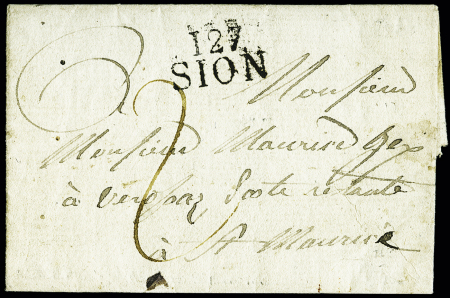 127
SION
Monsieur
Monsieur Maurice Gex
à Verossaz Poste restante
à St Maurice
2